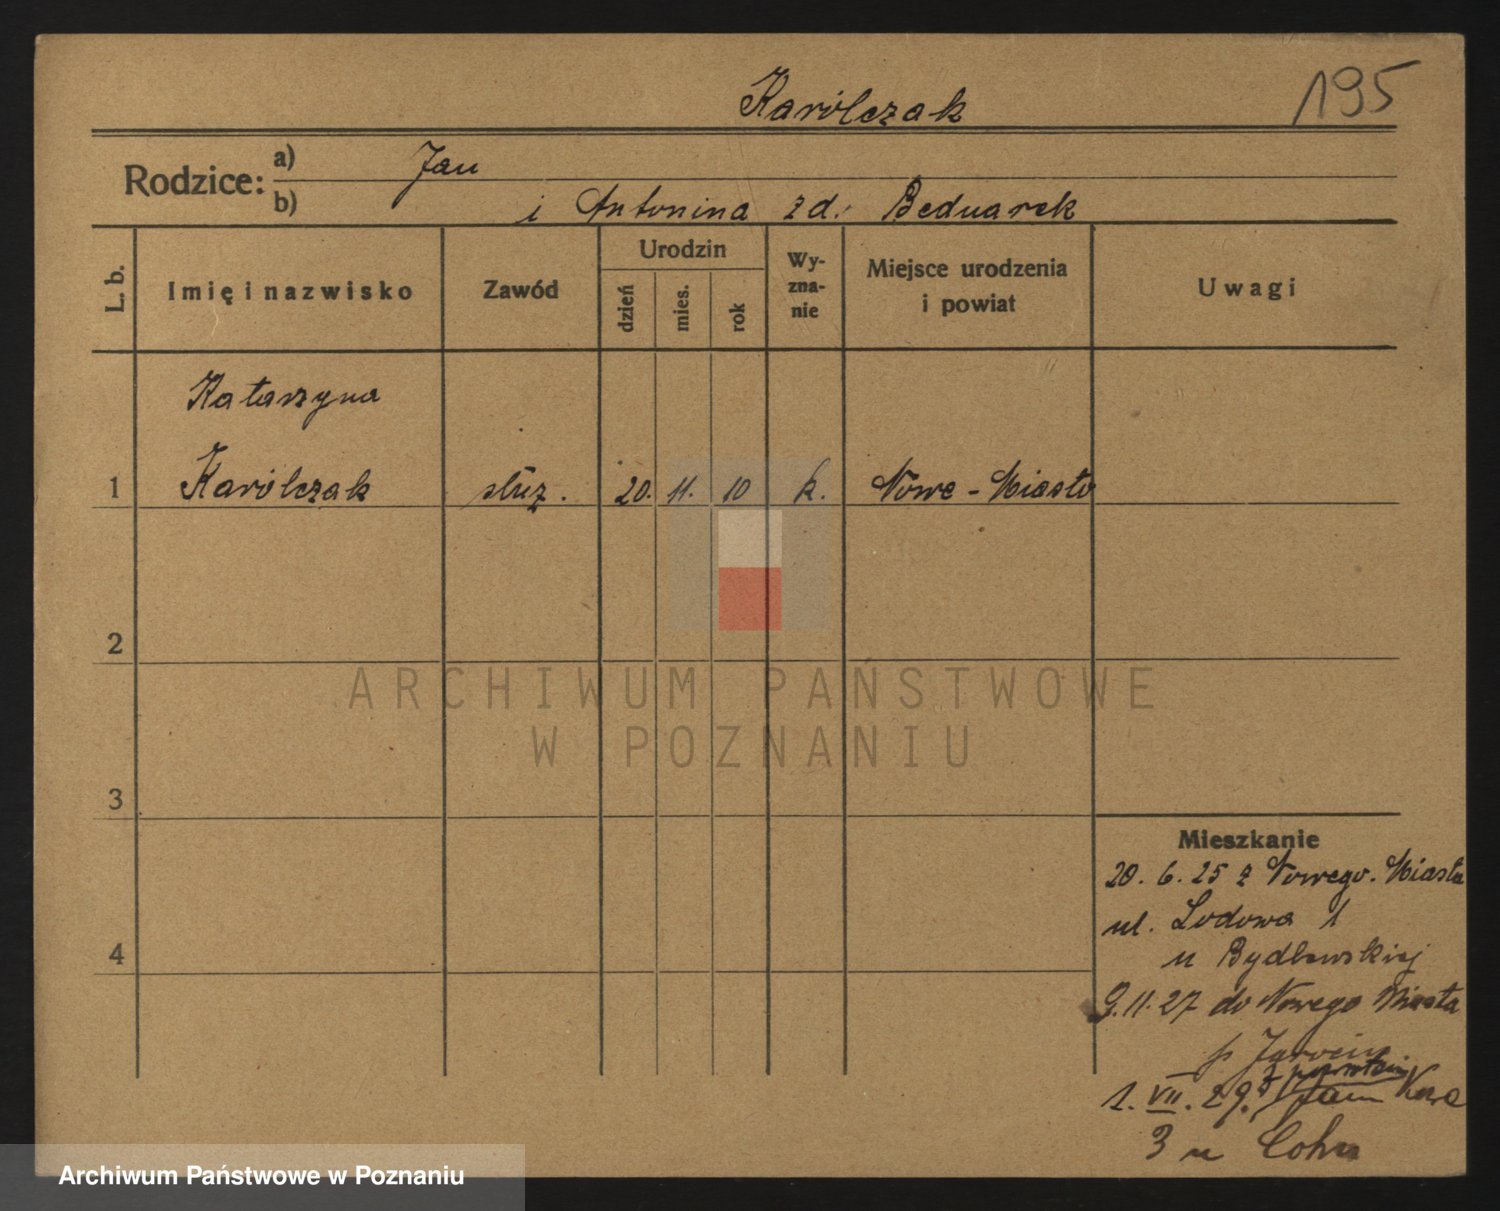 Karólczak
195
Rodzice:
a) Jan
b) i Antonina zd. Bednarek
L. b.
Imię i nazwisko
Zawód
Urodzin
dzień
mies.
rok
Wy-
zna-
nie
Miejsce urodzenia
i powiat
Uwagi
Katarzyna
1 Karólczak służ. 20. 11. 10 k. Nowe-Miasto
2
ARCHIWUM PAŃSTWOWE
W POZNANIU
3
Mieszkanie
20. 6. 25 z Nowego-Miasta
ul. Lodowa 1
4
u Bydłowskiej
9.11.27 do Nowego Miasta
p Jarocin
z powrotem
1. VII. 29.
3 u Cohn
Archiwum Państwowe w Poznaniu